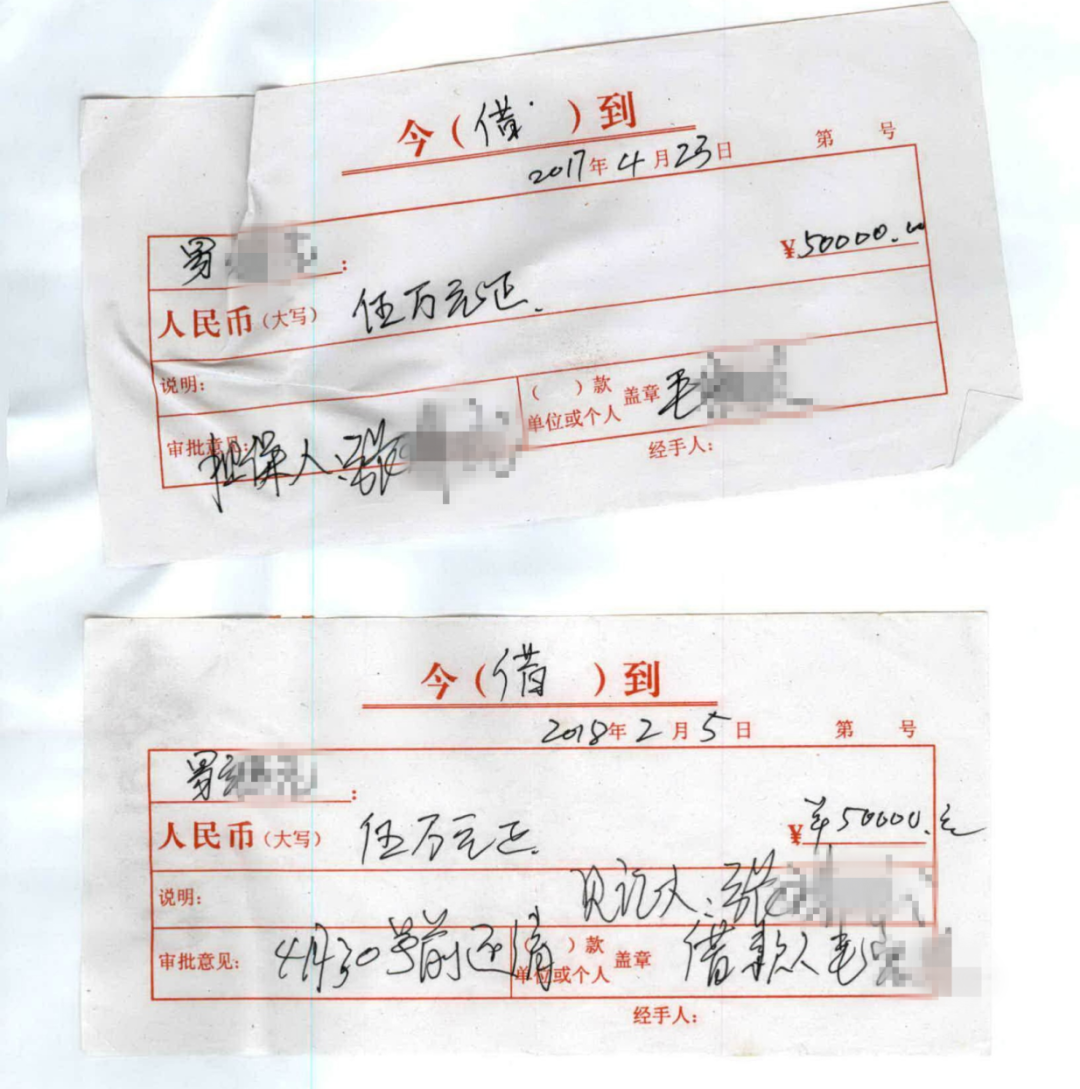 今（借）到
2017年4月23日 第 号
¥50000.00
人民币（大写） 伍万元正.
说明：
（ ）款
单位或个人 盖章 毛
审批意见： 担保人：张
经手人：
今（借）到
2018年2月5日 第 号
人民币（大写） 伍万元正. ¥ ¥50000.元
说明： 见证人：张
审批意见： 4月30号前还清 ）款
单位或个人 盖章 借款人毛
经手人：